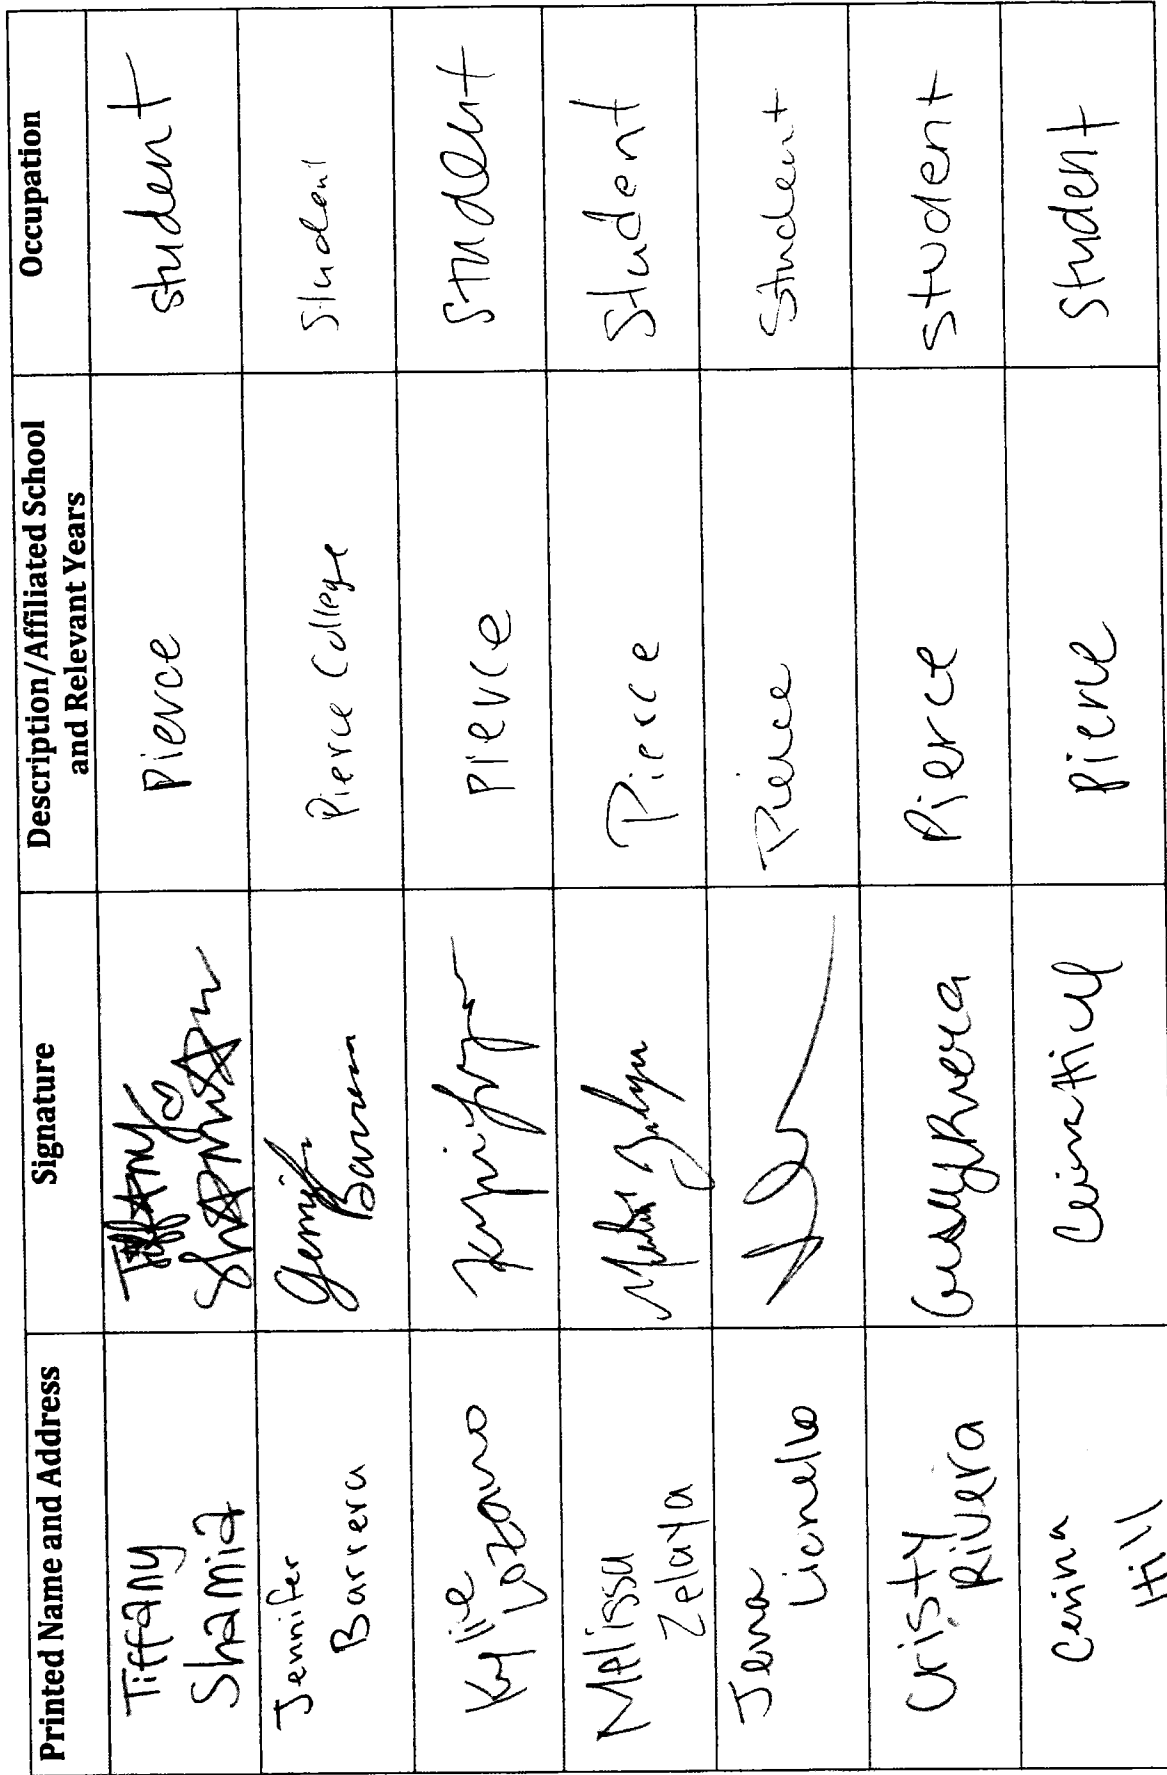 Printed Name and Address
Signature
Description/Affiliated School
and Relevant Years
Occupation
Tiffany
Shamia
Tiffany
Pierce
student
Jennifer
Barrera
Jennifer
Barrera
Pierce College
Student
Kylie
Lozano
Pierce
Student
Melissa
Zelaya
Pierce
Student
Jenna
Licnello
Pierce
Student
Cristy
Rivera
Cristy Rivera
Pierce
student
Cerina
Hill
Cerina Hill
Pierce
Student